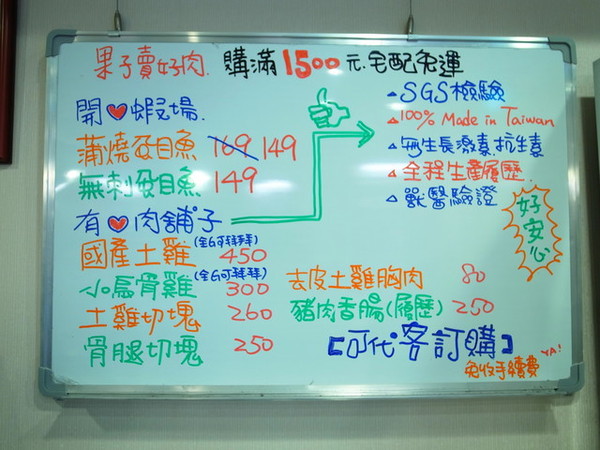 果子賣好肉. 購滿1500元.宅配免運
開♥蝦場.
蒲燒虱目魚 169 149
無刺虱目魚 149
有♥肉舖子
國產土雞 (全G可拜拜) 450
小烏骨雞 (全G可拜拜) 300
土雞切塊 260
骨腿切塊 250
SGS檢驗
100% Made in Taiwan
無生長激素抗生素
全程生產履歷.
獸醫驗證
好安心
去皮土雞胸肉 80
豬肉香腸(履歷) 250
【可代客訂購】
免收手續費 YA!